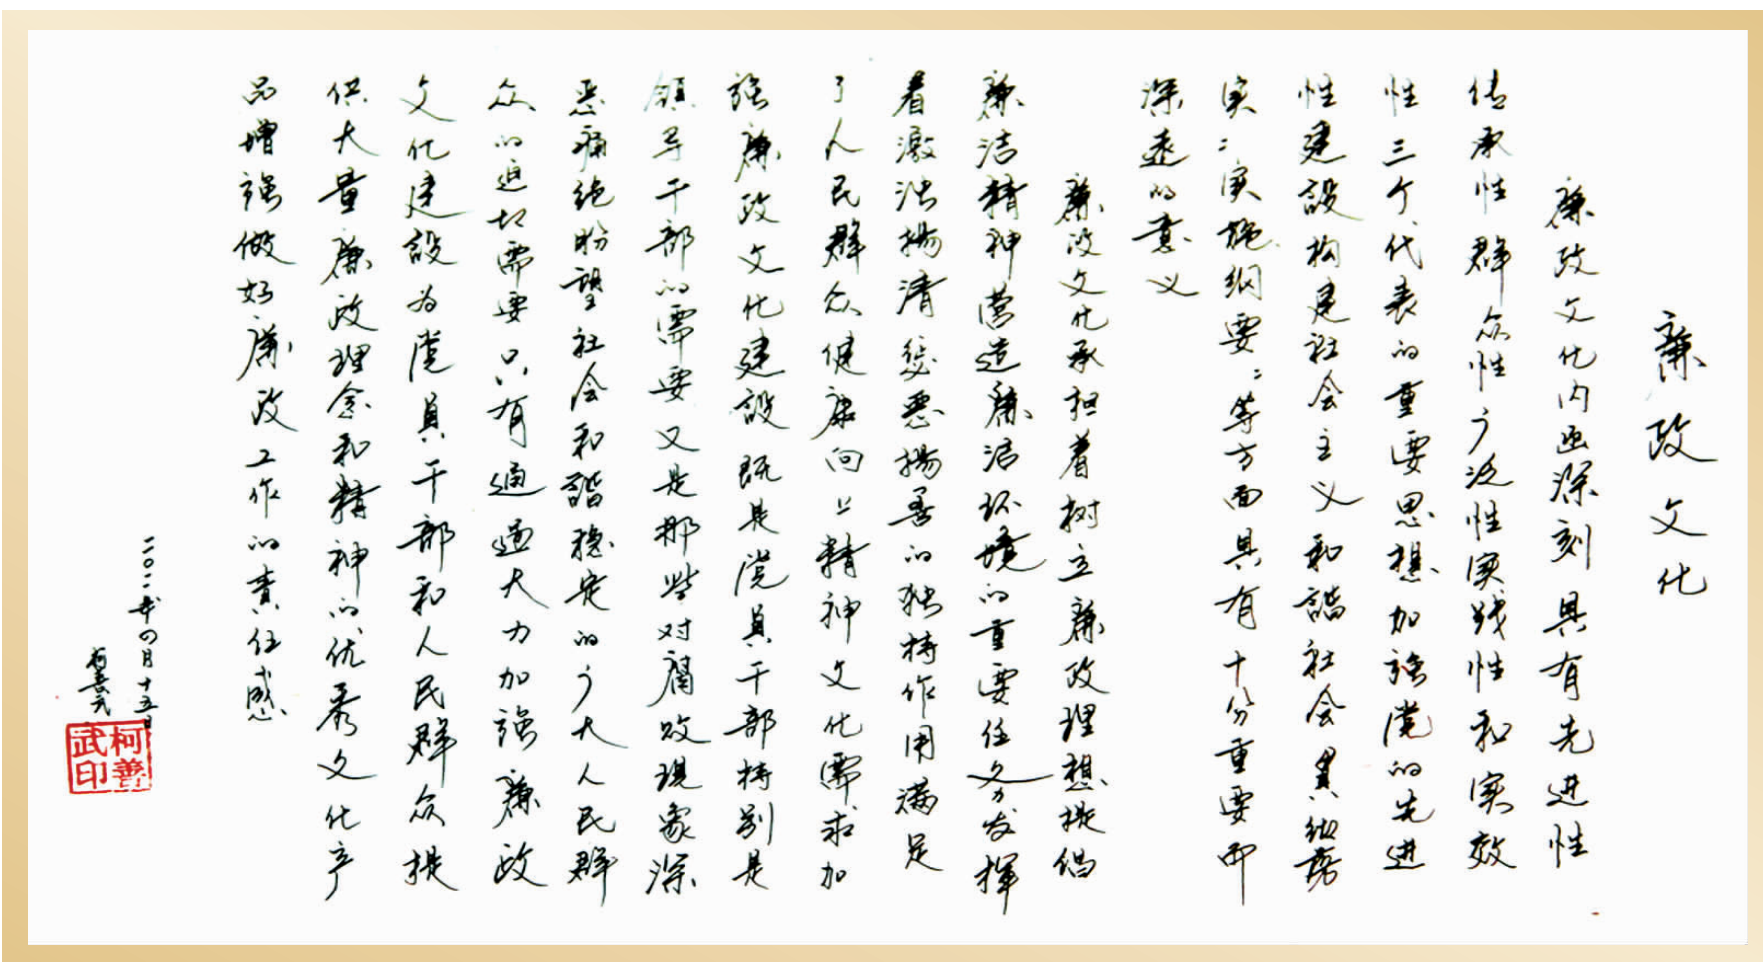 廉政文化
廉政文化内涵深刻具有先进性
传承性群众性广泛性实践性和实效
性三个代表的重要思想加強党的先进
性建設构建社会主义和諧社会貫彻落
实：实施纲要：等方面具有十分重要而
深远的意义
廉政文化承担着树立廉政理想提倡
廉洁精神营造廉洁环境的重要任务发揮
着激浊揚清惩恶揚善的独特作用满足
了人民群众健康向上精神文化需求加
強廉政文化建設既是党員干部特别是
領导干部的需要又是那些对腐败現象深
恶痛绝盼望社会和諧稳定的广大人民群
众的迫切需要只有通过大力加強廉政
文化建設为党員干部和人民群众提
供大量廉政理念和精神的优秀文化产
品增強做好廉政工作的責任感
二〇一一年四月十五日
柯善武印